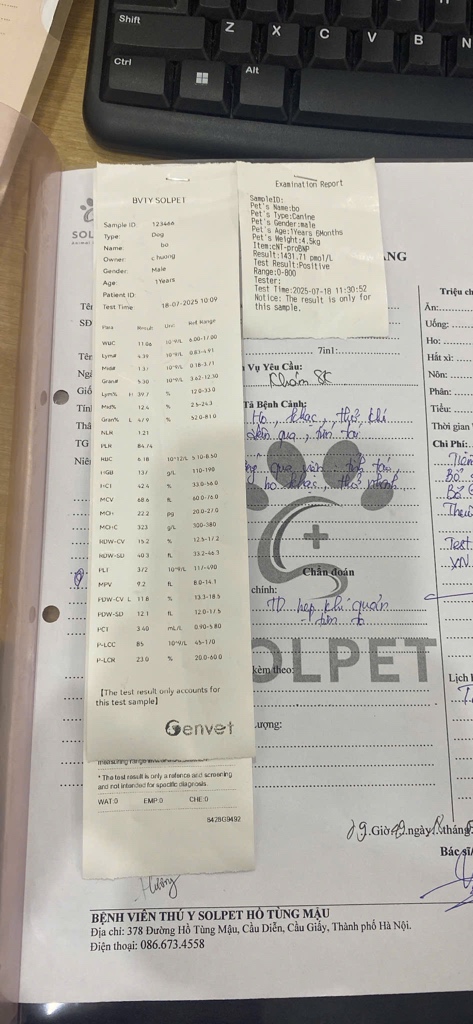 Shift
Z
X
C
V
B
N
Ctrl
Alt
BVTY SOLPET
Sample ID: 123466
Type: Dog
Name: bo
Owner: c huong
Gender: Male
Age: 1Years
Patient ID:
Test Time: 18-07-2025 10:09
Para Result Unit Ref. Range
WBC 11.06 10^9/L 6.00-17.00
Lym# 4.39 10^9/L 0.83-4.91
Mid# 1.37 10^9/L 0.18-3.71
Gran# 5.30 10^9/L 3.62-12.30
Lym% H 39.7 % 12.0-33.0
Mid% 12.4 % 2.5-24.3
Gran% L 47.9 % 52.0-81.0
NLR 1.21
PLR 84.74
RBC 6.18 10^12/L 5.10-8.50
HGB 137 g/L 110-190
HCT 42.4 % 33.0-56.0
MCV 68.6 fL 60.0-76.0
MCH 22.2 pg 20.0-27.0
MCHC 323 g/L 300-380
RDW-CV 15.2 % 12.5-17.2
RDW-SD 40.3 fL 33.2-46.3
PLT 372 10^9/L 117-490
MPV 9.2 fL 8.0-14.1
PDW-CV L 11.8 % 13.3-18.5
PDW-SD 12.1 fL 12.0-17.5
PCT 3.40 mL/L 0.90-5.80
P-LCC 85 10^9/L 45-170
P-LCR 23.0 % 20.0-60.0
[The test result only accounts for
this test sample]
Genvet
* The test result is only a refence and screening
and not intended for specific diagnosis.
WAT:0 EMP:0 CHE:0
8428G9492
Examination Report
SampleID:
Pet's Name:bo
Pet's Type:Canine
Pet's Gender:male
Pet's Age:1Years 6Months
Pet's Weight:4.5kg
Item:cNT-proBNP
Result:1431.71 pmol/L
Test Result:Positive
Range:0-800
Tester:
Test Time:2025-07-18 11:30:52
Notice: The result is only for
this sample.
7in1:
Vụ Yêu Cầu:
Khám SK
Tả Bệnh Cảnh:
Ho, khạc, thở khí
Chẩn đoán
chính:
TD hẹp khí quản
kèm theo:
OLPET
lượng:
Triệu ch
Ăn:
Uống:
Ho:
Hắt xì:
Nôn:
Phân:
Tiểu:
Thời gian
Chi Phí:
Test
XN
Lịch
Giờ
ngày
tháng
Bác sĩ
Hương
BỆNH VIỆN THÚ Y SOLPET HỒ TÙNG MẬU
Địa chỉ: 378 Đường Hồ Tùng Mậu, Cầu Diễn, Cầu Giấy, Thành phố Hà Nội.
Điện thoại: 086.673.4558